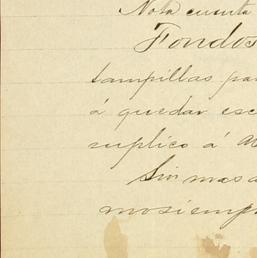 Nota cuenta
Fondos
tampillas par
á quedar esc
suplico á
Sin mas
mosiemp